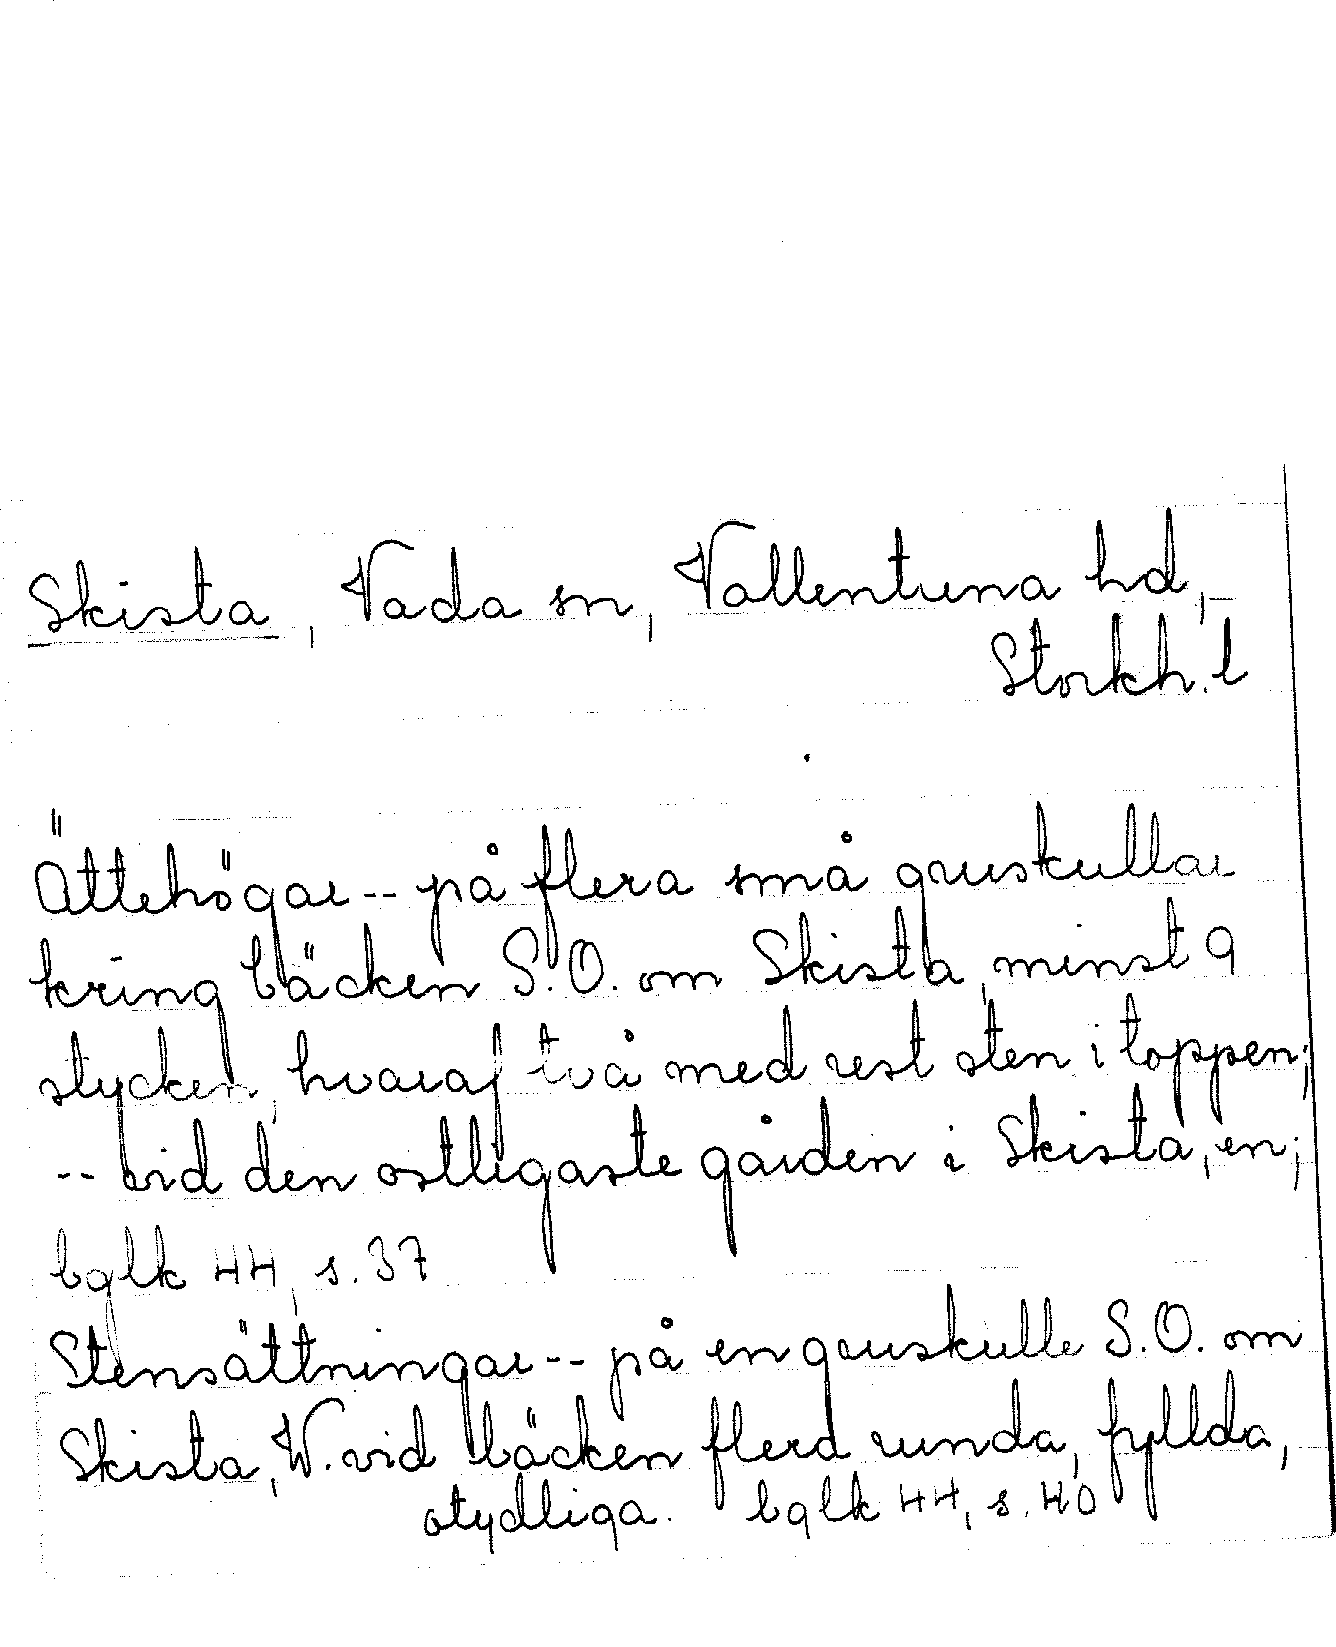 Skista, Vada sn, Vallentuna hd,
Storkh. l
Ättehögar -- på flera små gruskullar
kring bäcken S.O. om Skista, minst 9
stycken, hvaraf två med rest sten i toppen;
-- vid den ostligaste gården i Skista, en;
bglk 44, s. 37
Stensättningar -- på en gruskulle S.O. om
Skista, W. vid bäcken flera runda, fyllda,
otydliga. bglk 44, s. 40